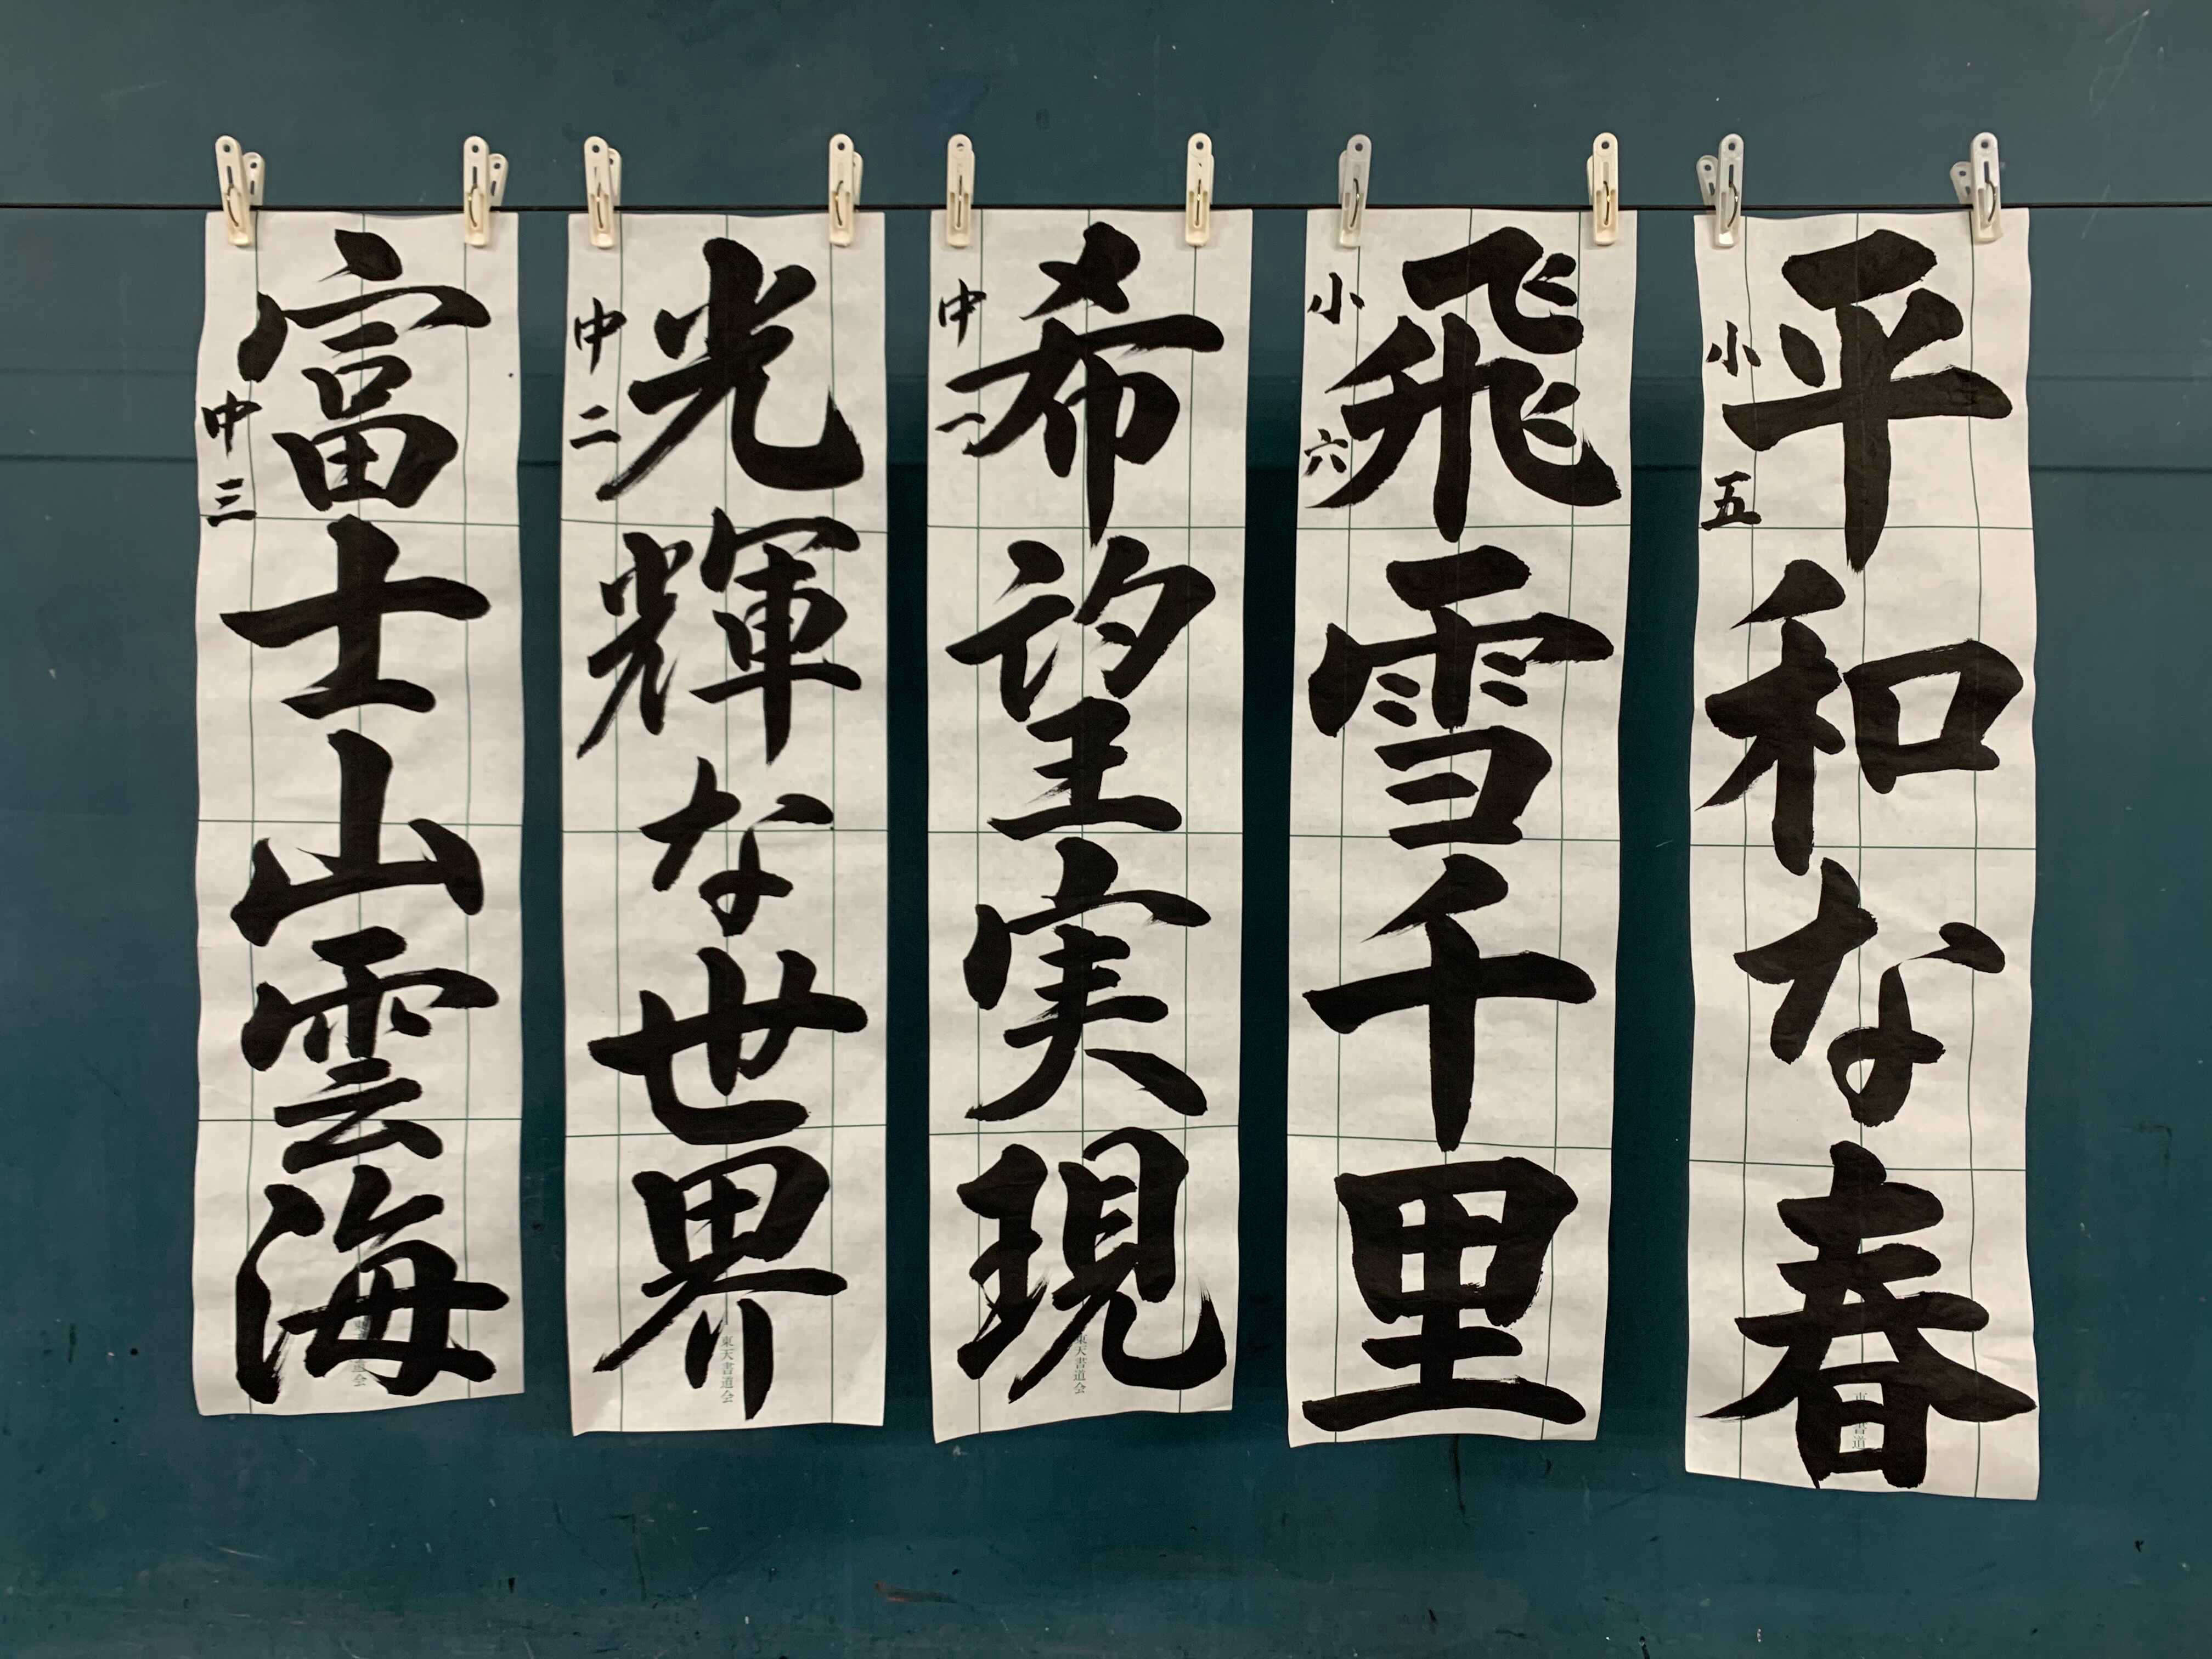 平和な春
小五
飛雪千里
小六
希望実現
中一
東天書道会
光輝な世界
中二
東天書道会
富士山雲海
中三